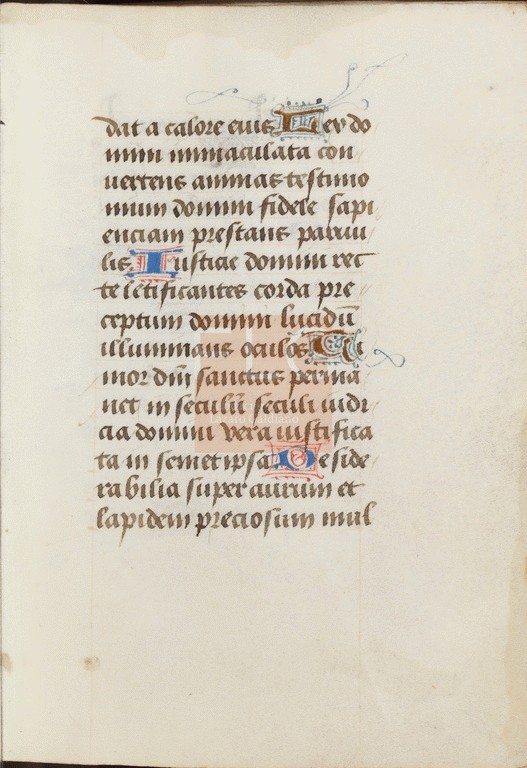 dat a calore eius Lex do
mini inmaculata con
uertens animas testimo
nium domini fidele sapi
enciam prestans paruu
lis Iusticie domini rec
te letificantes corda pre
ceptum domini lucidū
illuminans oculos Ti
mor dn̄i sanctus perma
net in seculū seculi iudi
cia domini vera iustifica
ta in semetipsa Deside
rabilia super aurum et
lapidem preciosum mul